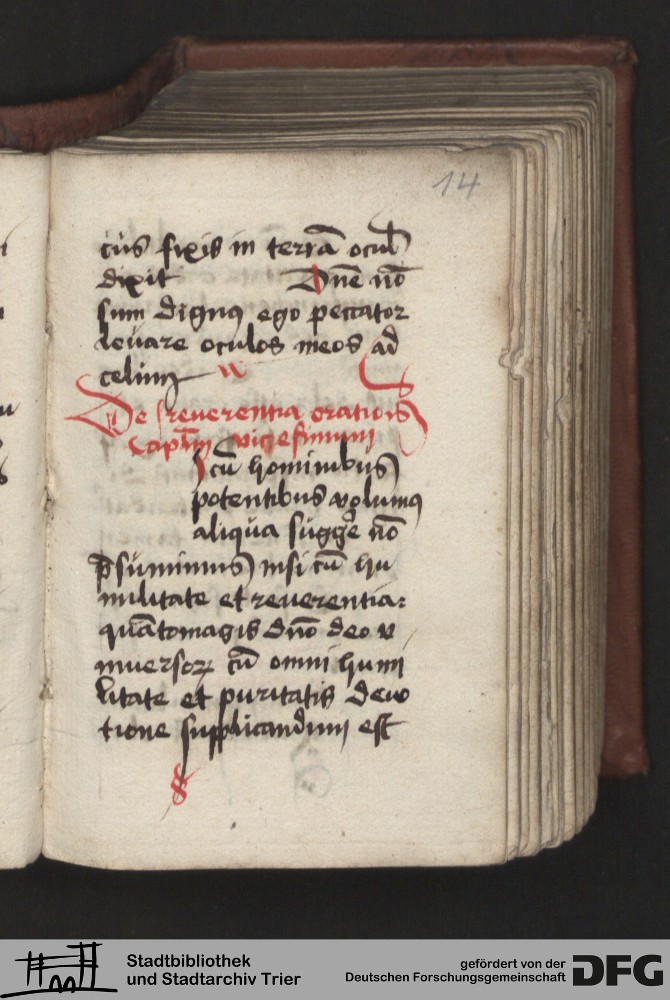 14
cūs fixis in terrā ocul
dixit Dn̄e nō
sum dignus ego peccator
levare oculos meos ad
celum
De reverentia orationis
Capl̄m vigesimum
Si cū hominibus
potentibus volumus
aliqua suggere nō
p̄sumimus nisi cū hu
militate et reverentia:
quātomagis dn̄o deo v
niversorꝝ cū omni humi
litate et puritatis devo
tione supplicandum est
Stadtbibliothek
und Stadtarchiv Trier
gefördert von der
Deutschen Forschungsgemeinschaft
DFG